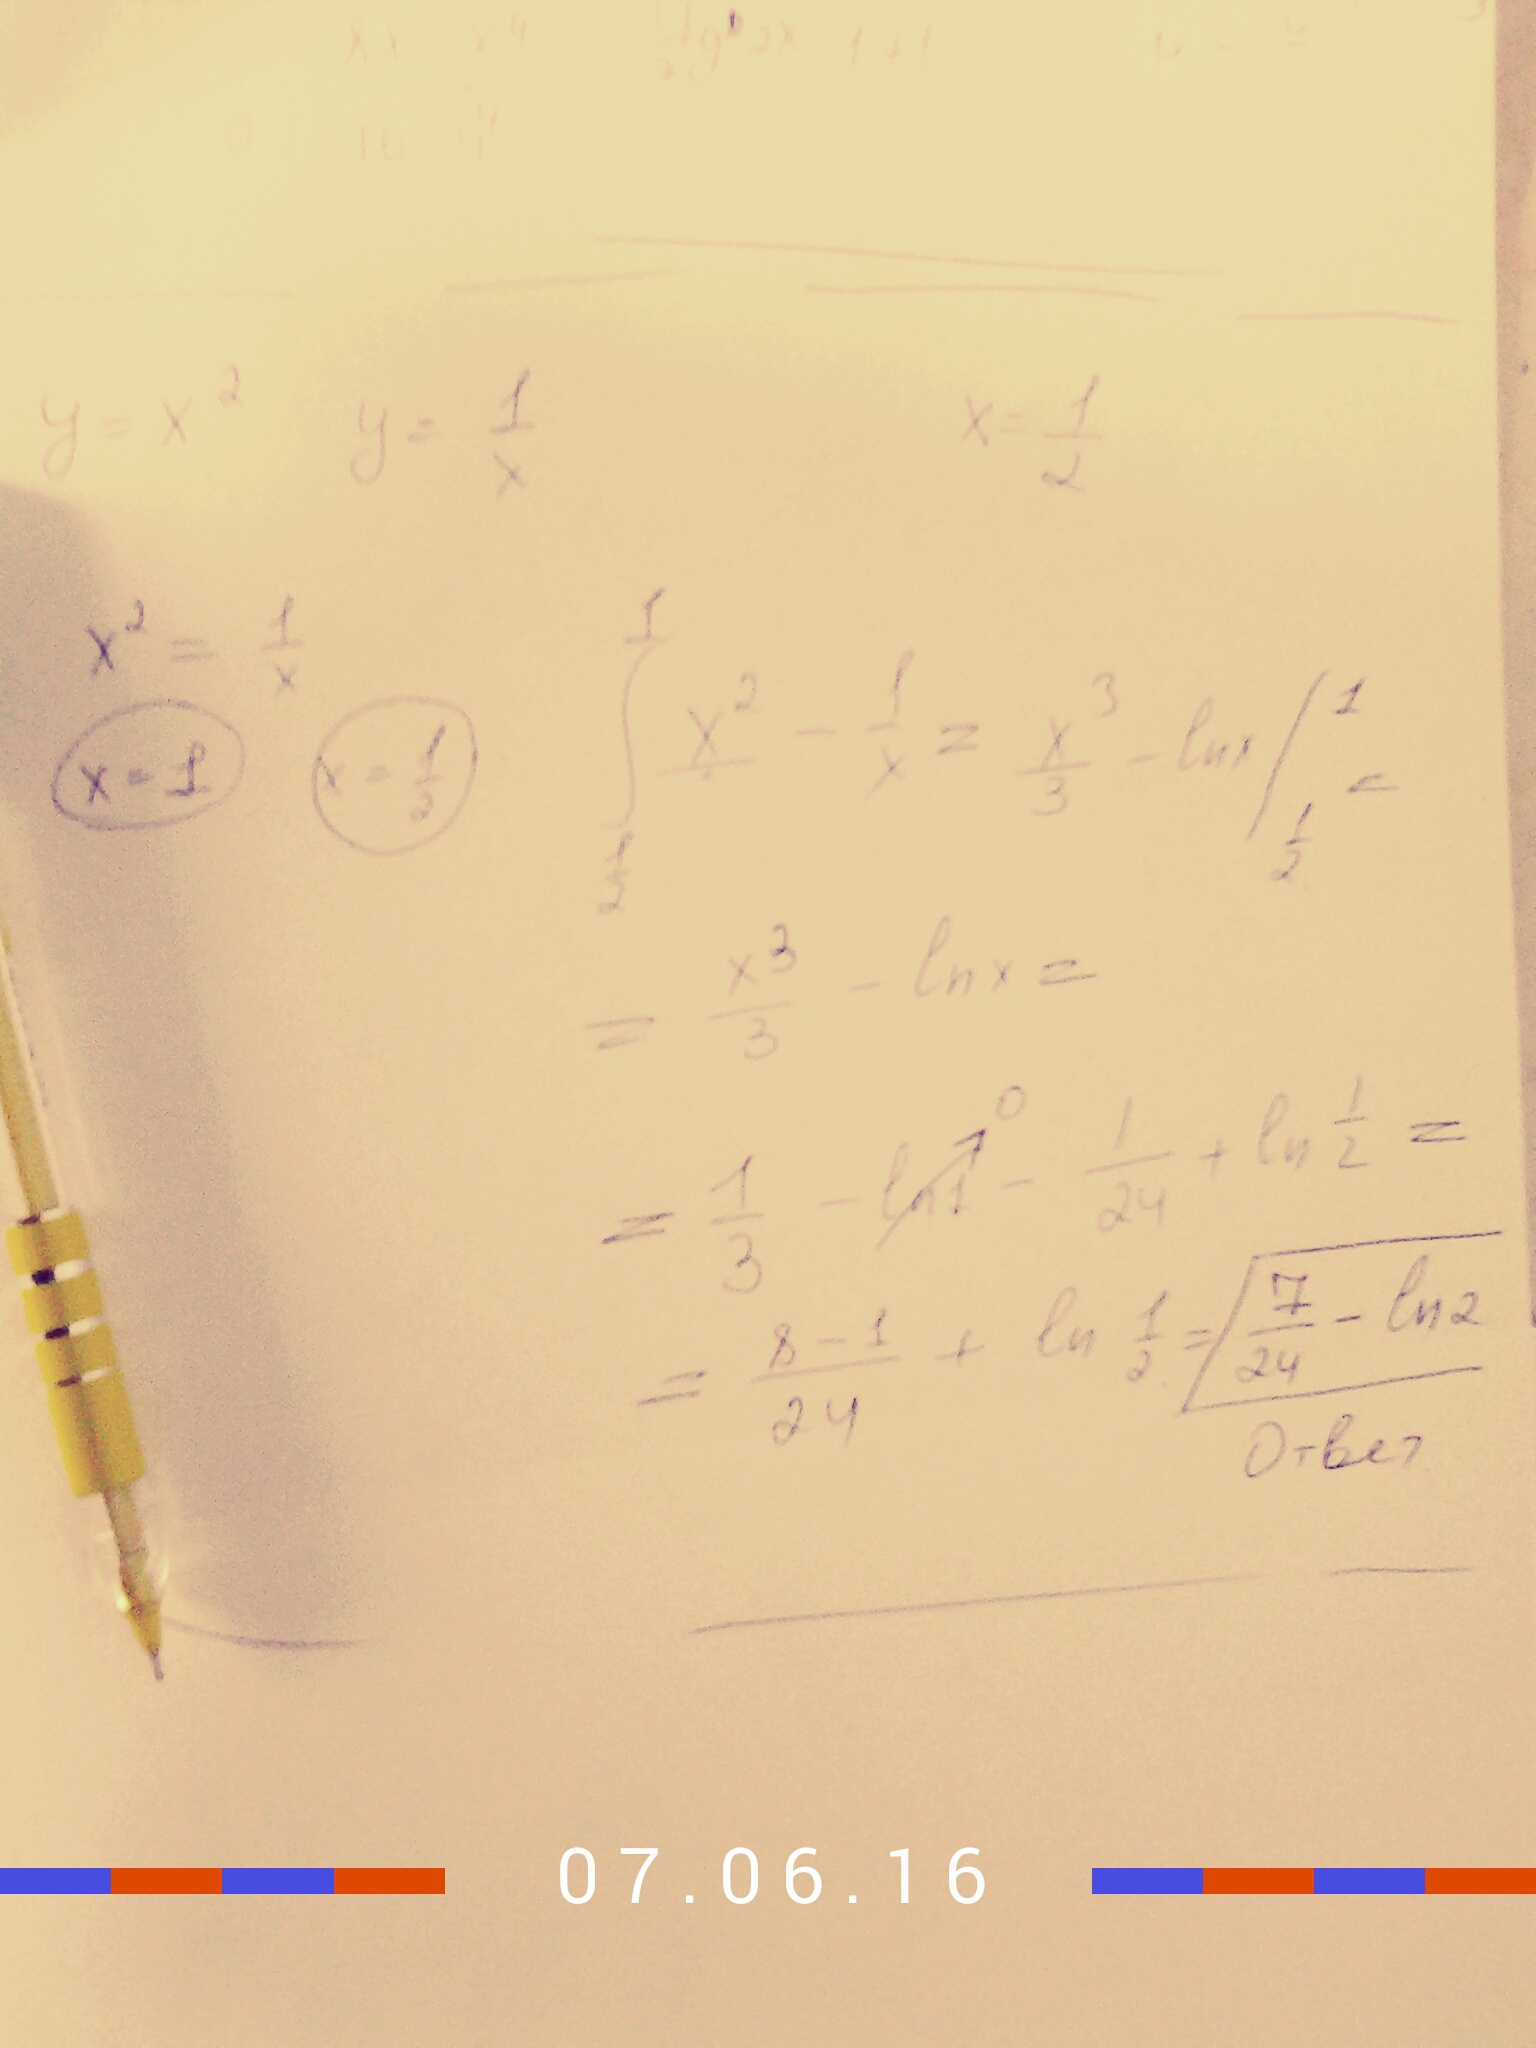 y = x² y = 1/x x = 1/2
x² = 1/x
x = 1 x = 1/2
∫_{1/2}^{1} x² - 1/x = x³/3 - lnx /_{1/2}^{1} =
= x³/3 - lnx =
= 1/3 - ln1 →0 - 1/24 + ln 1/2 =
= 8-1/24 + ln 1/2 = 7/24 - ln2
Ответ
07.06.16